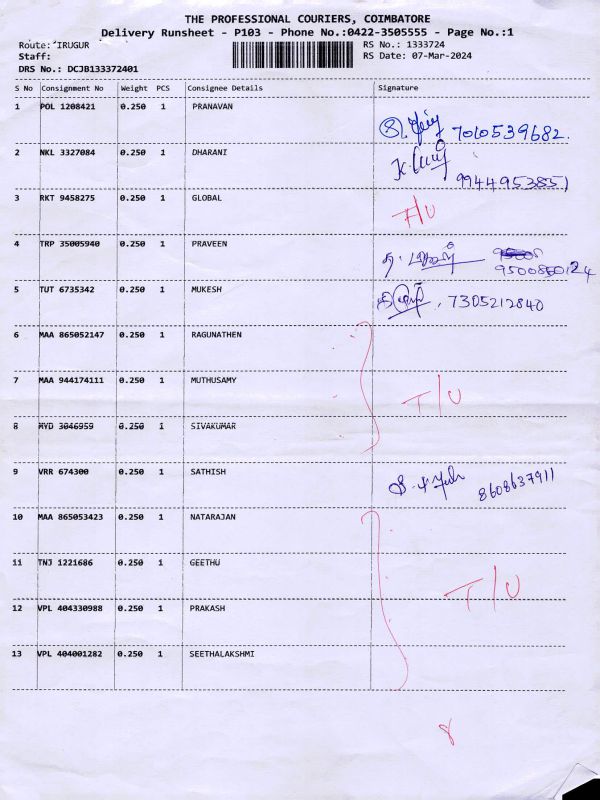 THE PROFESSIONAL COURIERS, COIMBATORE
Delivery Runsheet - P103 - Phone No.:0422-3505555 - Page No.:1
Route: IRUGUR RS No.: 1333724
Staff: RS Date: 07-Mar-2024
DRS No.: DCJB133372401
S No Consignment No Weight PCS Consignee Details Signature
1 POL 1208421 0.250 1 PRANAVAN
7010539682.
2 NKL 3327084 0.250 1 DHARANI
9944953851
3 RKT 9458275 0.250 1 GLOBAL
T/U
4 TRP 35005940 0.250 1 PRAVEEN
9500850124
5 TUT 6735342 0.250 1 MUKESH
7305212840
6 MAA 865052147 0.250 1 RAGUNATHEN
7 MAA 944174111 0.250 1 MUTHUSAMY
T/U
8 MYD 3046959 0.250 1 SIVAKUMAR
9 VRR 674300 0.250 1 SATHISH
8608637911
10 MAA 865053423 0.250 1 NATARAJAN
11 TNJ 1221686 0.250 1 GEETHU
T/U
12 VPL 404330988 0.250 1 PRAKASH
13 VPL 404001282 0.250 1 SEETHALAKSHMI
8